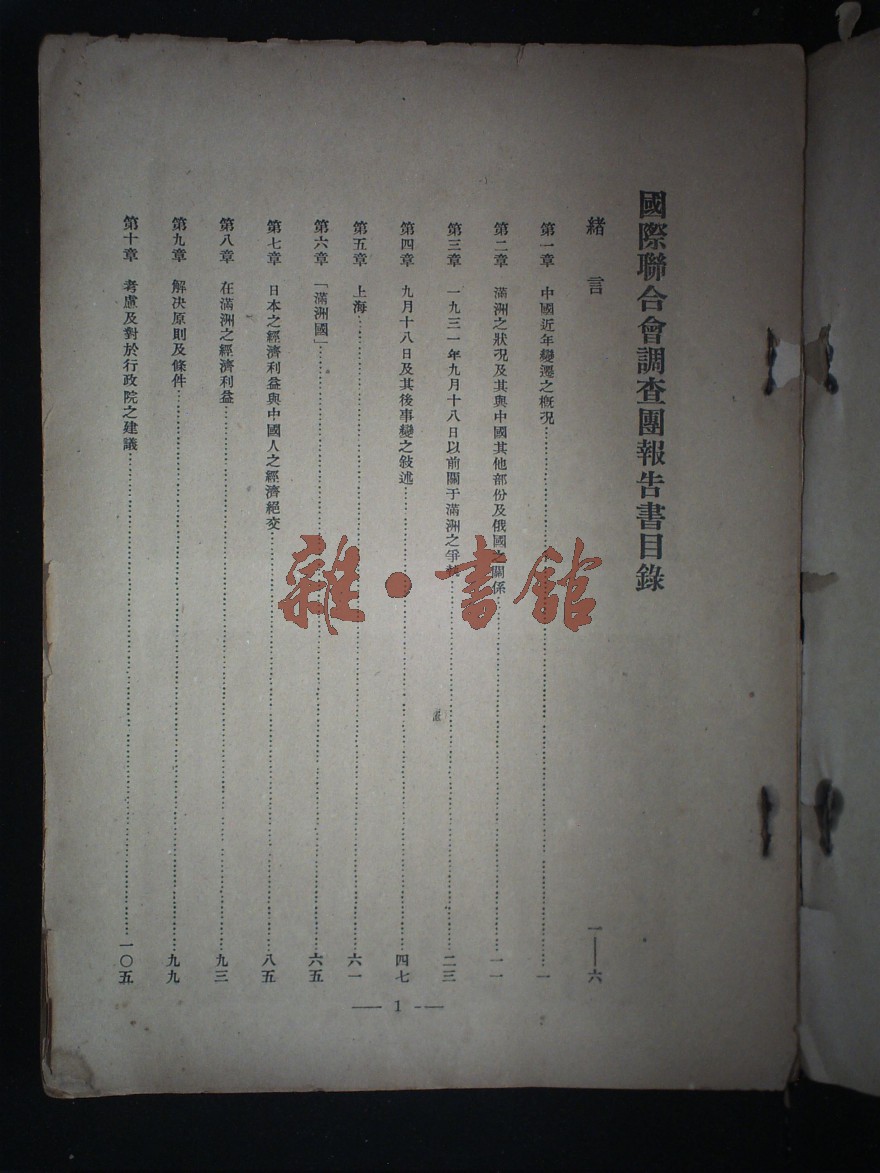 國際聯合會調查團報告書目錄
緒言 一——六
第一章 中國近年變遷之概况…………一
第二章 滿洲之狀况及其與中國其他部份及俄國之關係…………一一
第三章 一九三一年九月十八日以前關于滿洲之爭執…………二三
第四章 九月十八日及其後事變之敍述…………四七
第五章 上海…………六一
第六章 「滿洲國」…………六五
第七章 日本之經濟利益與中國人之經濟絕交…………八五
第八章 在滿洲之經濟利益…………九三
第九章 解决原則及條件…………九九
第十章 考慮及對於行政院之建議…………一〇五
— 1 —
雜·書館